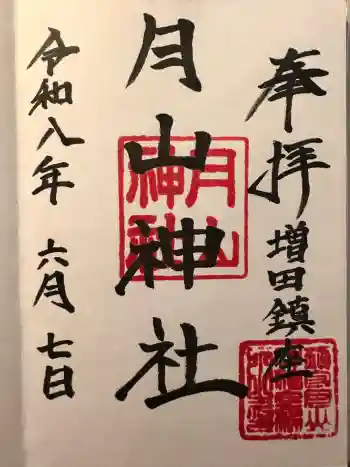 奉拝
増田鎮座
月山神社
月山神社
令和八年 六月 七日